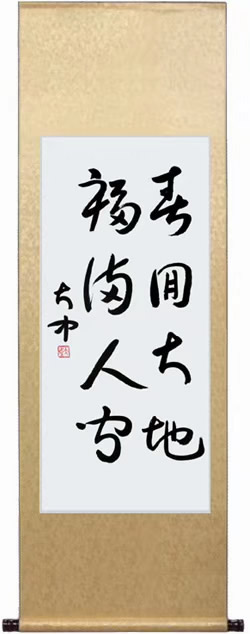 春回大地
福满人间